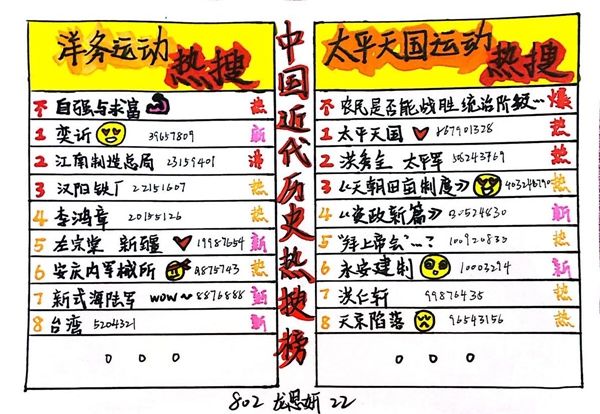 洋务运动
热搜
不 自强与求富 热
1 奕訢 39657809 新
2 江南制造总局 23159401 沸
3 汉阳铁厂 22151607 热
4 李鸿章 20155126 热
5 左宗堂 新疆 19987654 新
6 安庆内军械所 9875743 热
7 新式海陆军 wow~8876888 新
8 台湾 5204321 新
中国近代历史热搜榜
太平天国运动
热搜
不 农民是否能战胜统治阶级… 爆
1 太平天国 867901328 热
2 洪秀全 太平军 56243769 热
3 《天朝田亩制度》 403246790 热
4 《资政新篇》 30524630 新
5 "拜上帝会"…? 100920835 热
6 永安建制 10003294 新
7 洪仁轩 99876435 热
8 天京陷落 96543156 热
802 龙思妍 22